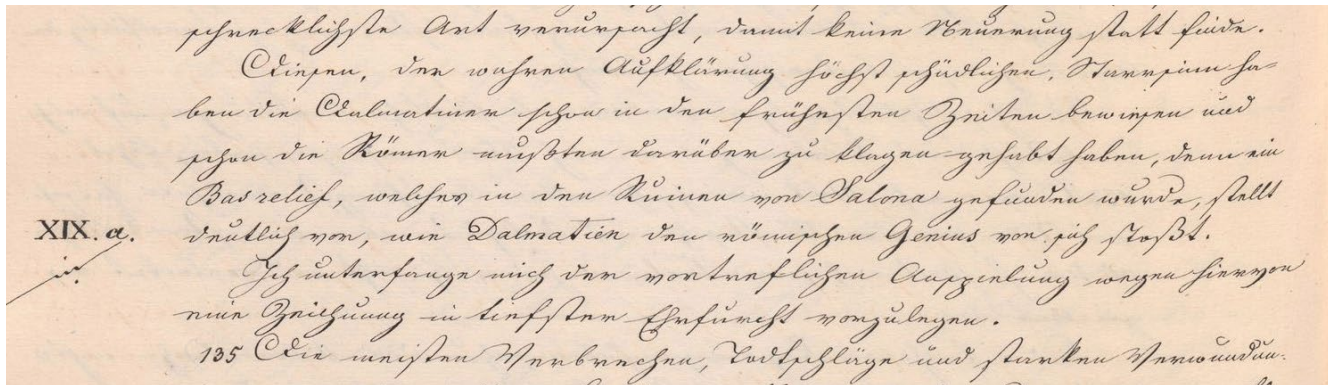 schrecklichste Art verursacht, damit keine Neuerung statt finde.
Diesen, der wahren Aufklärung höchst schädlichen, Starrsinn ha-
ben die Dalmatiner schon in den frühesten Zeiten bewiesen und
schon die Römer mußten darüber zu klagen gehabt haben, denn ein
Basrelief, welches in den Ruinen von Salona gefunden wurde, stellt
XIX. a. deutlich vor, wie Dalmatien den römischen Genius von sich stoßt.
Ich unterfange mich der vortreflichen Anspielung wegen hiervon
eine Zeichnung in tiefster Ehrfurcht vorzulegen.
135 Die meisten Verbrechen, Todtschläge und starken Verwundun-